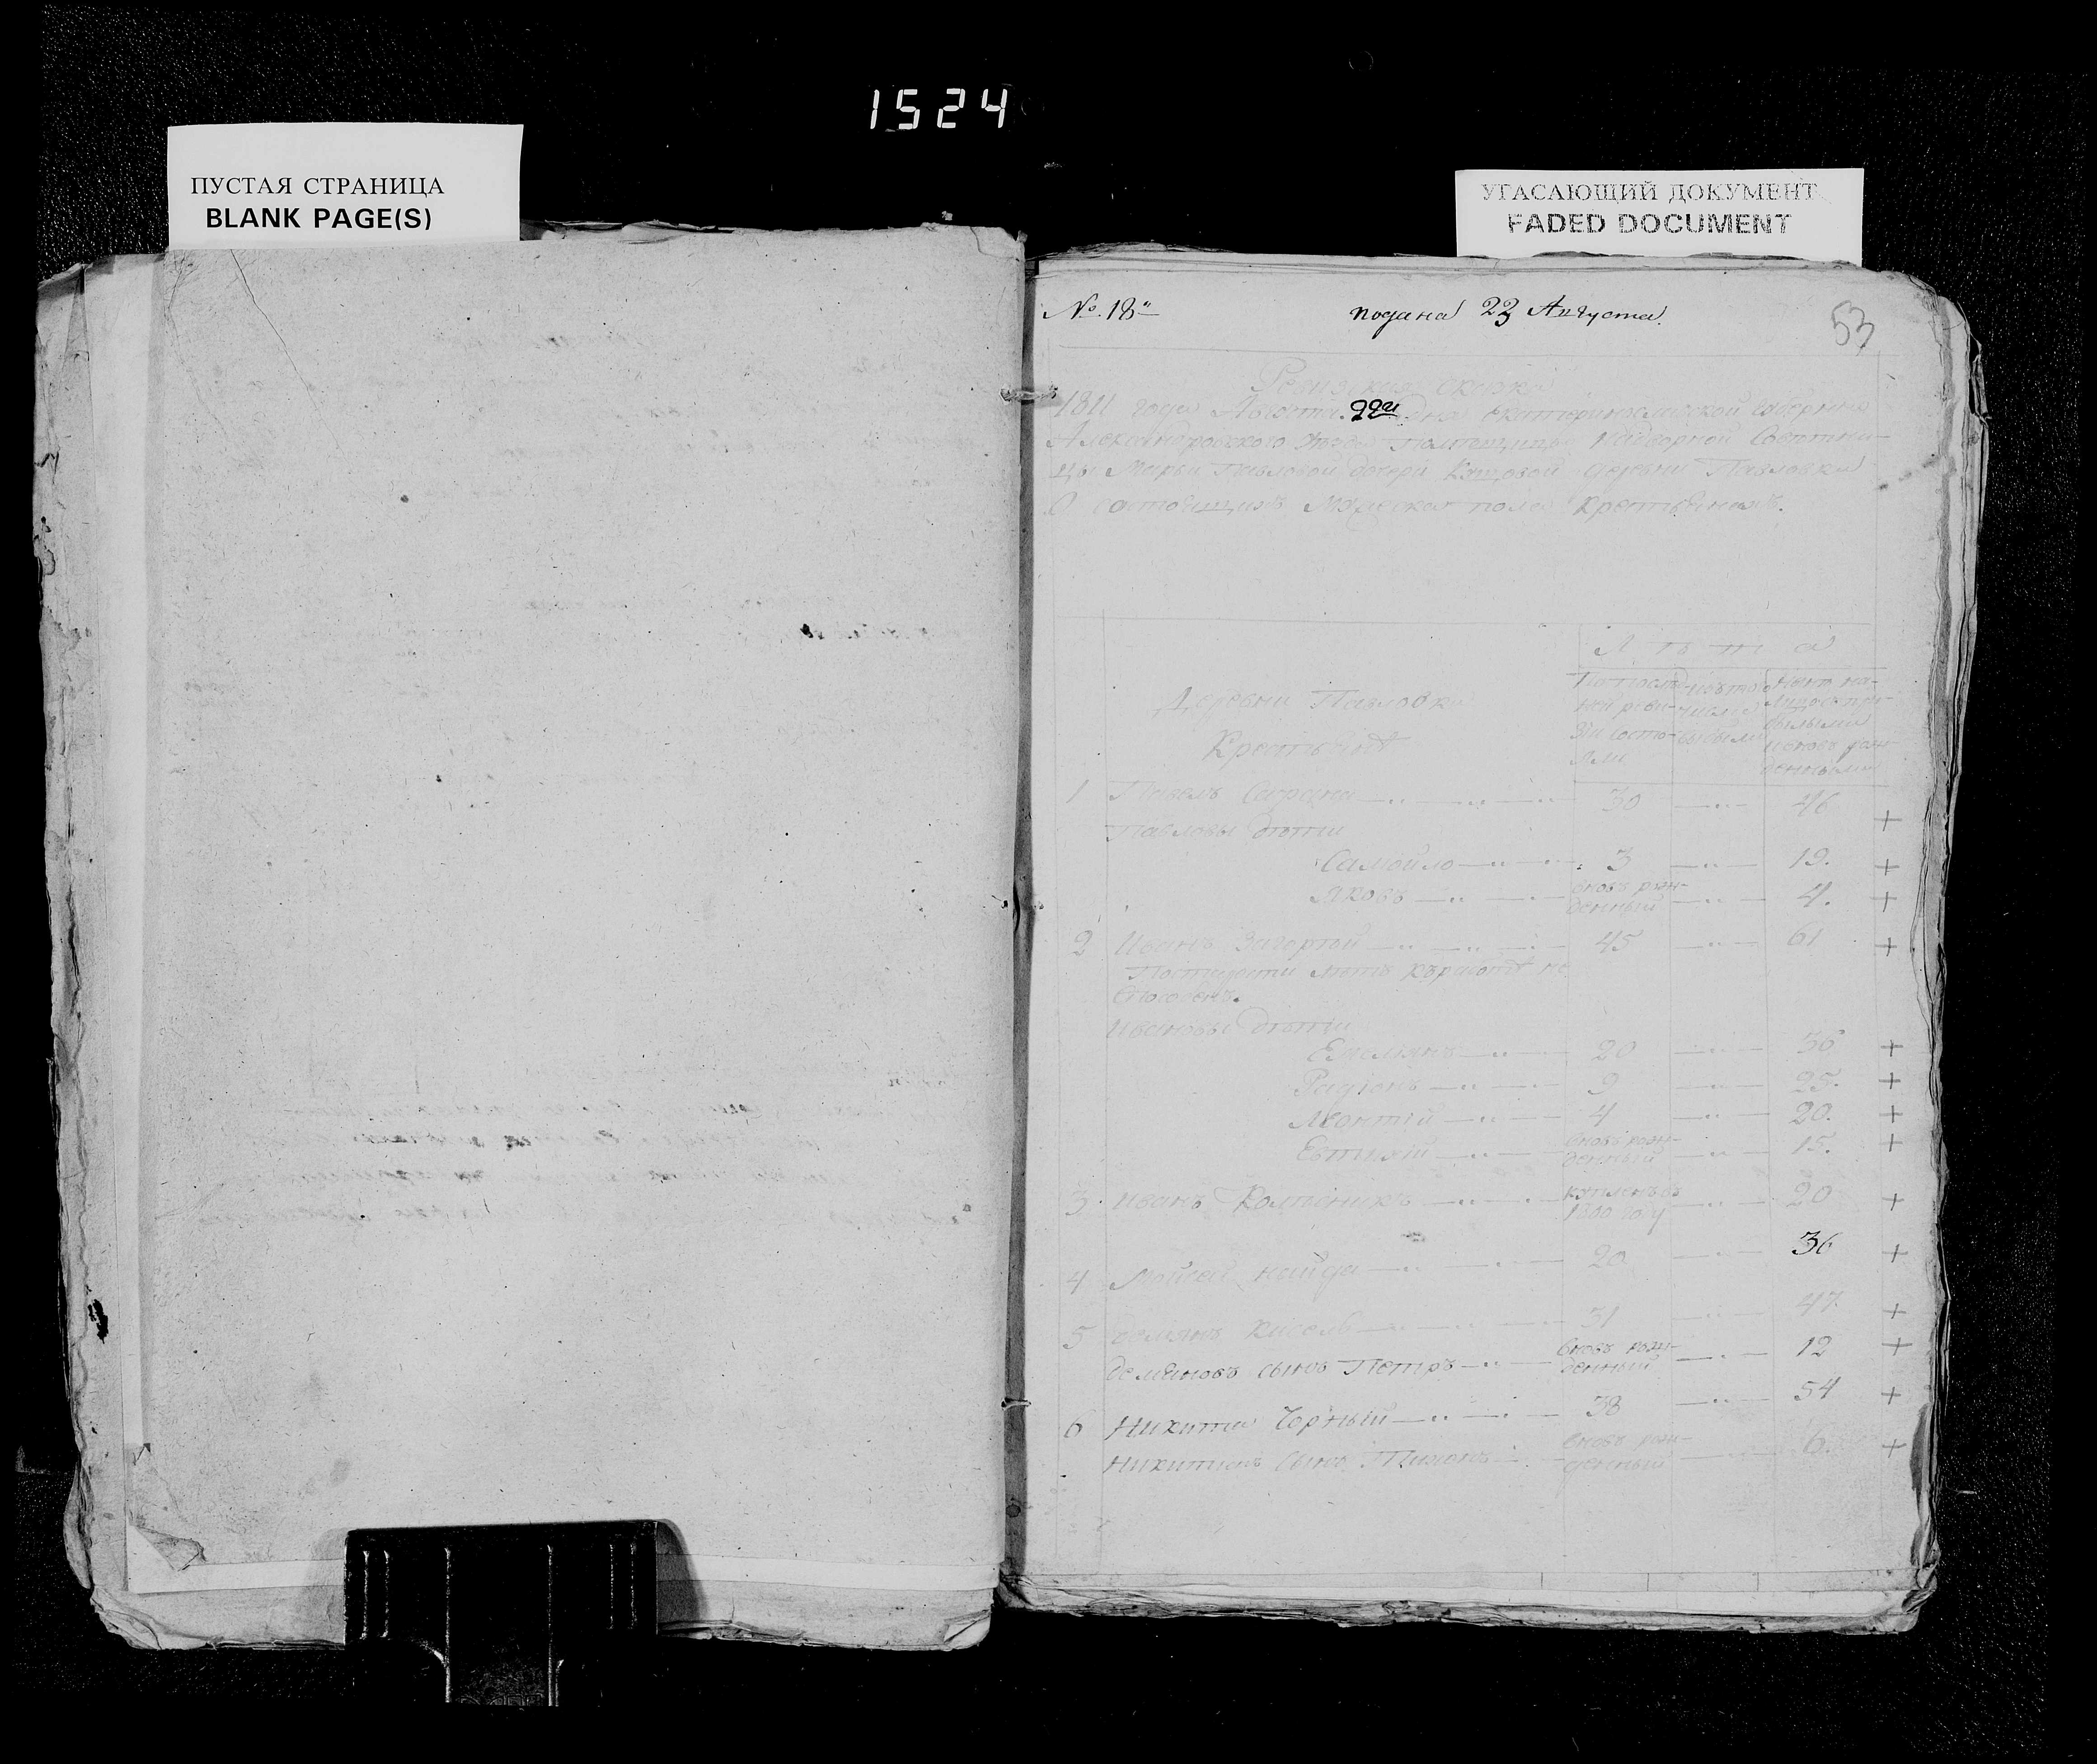 1524
ПУСТАЯ СТРАНИЦА
BLANK PAGE(S)
УГАСАЮЩИЙ ДОКУМЕНТ
FADED DOCUMENT
№ 18й
подана 23 Августа.
53
Ревизская сказка
1811 года Августа 22го дня Екатеринославской губернии
Александровского уезда Помещицы Надворной Советни-
цы Марьи Павловой дочери деревни Павловки
О состоящихъ Мужеска пола Крестьянахъ.
Лѣта
Деревни Павловки
Крестьянѣ
По послѣд-
ней реви-
зіи состо-
яли
Изъ того
числа
выбыли
Нынѣ на-
лицо с при-
былыми
и вновь рож-
денными
1 Павелъ 30 46 +
Павловы дѣти
Самойло 3 19. +
Яковъ вновь рож-
денный 4. +
2 Иванъ 45 61 +
По старости лѣтъ къ работѣ не
способенъ.
Ивановы дѣти
Емелянъ 20 36 +
Радіонъ 9 25. +
Леонтій 4 20. +
Евтихій вновь рож-
денный 15. +
3. Иванъ купленъ въ
1800 году 20 +
4 Мойсей Найда 20 36 +
5 Демянъ Кисель 31 47. +
Демяновъ сынъ Петръ вновь рож-
денный 12 +
6 Никита Чорный 38 54 +
Никитинъ сынъ Тихонъ вновь рож-
денный 6. +